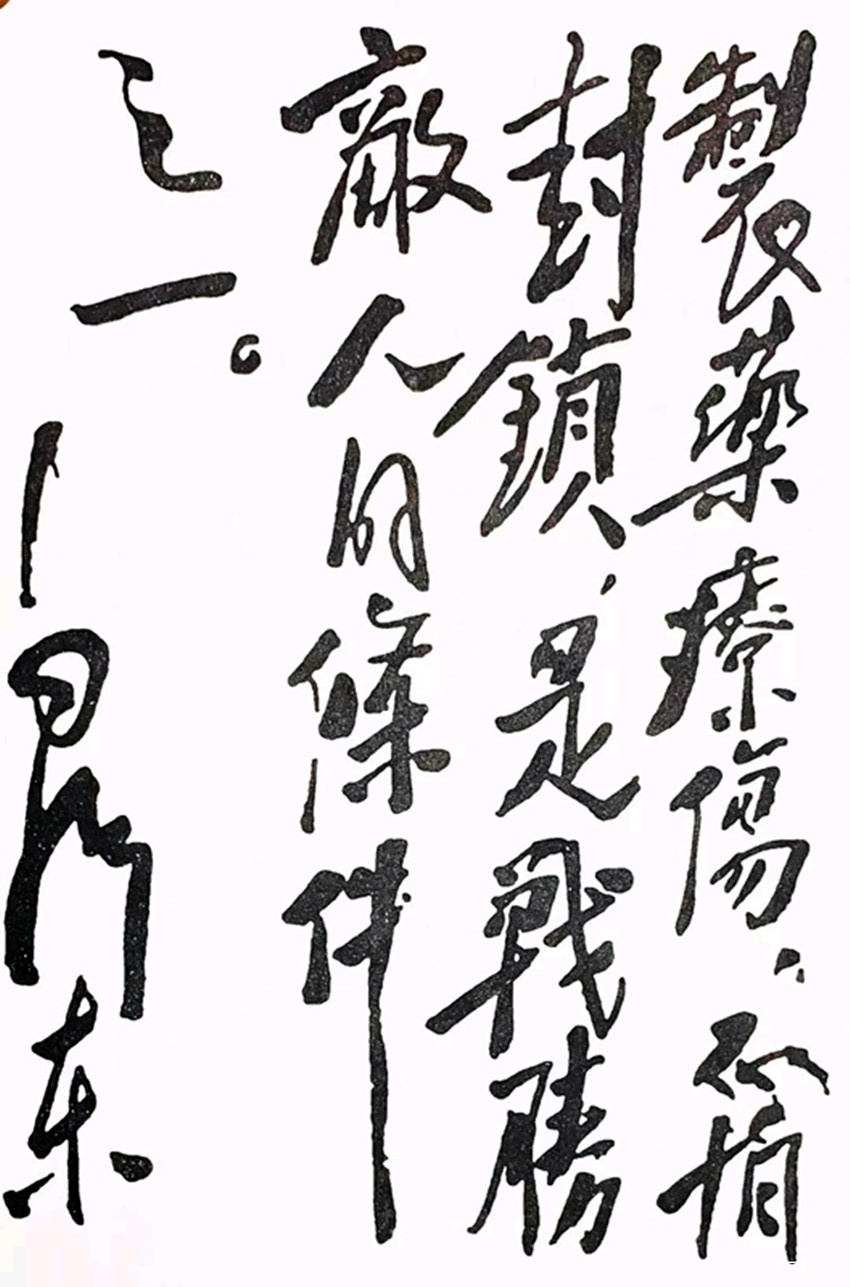 製藥療傷、不怕
封鎖,是戰勝
敵人的條件
之一。
—毛澤東